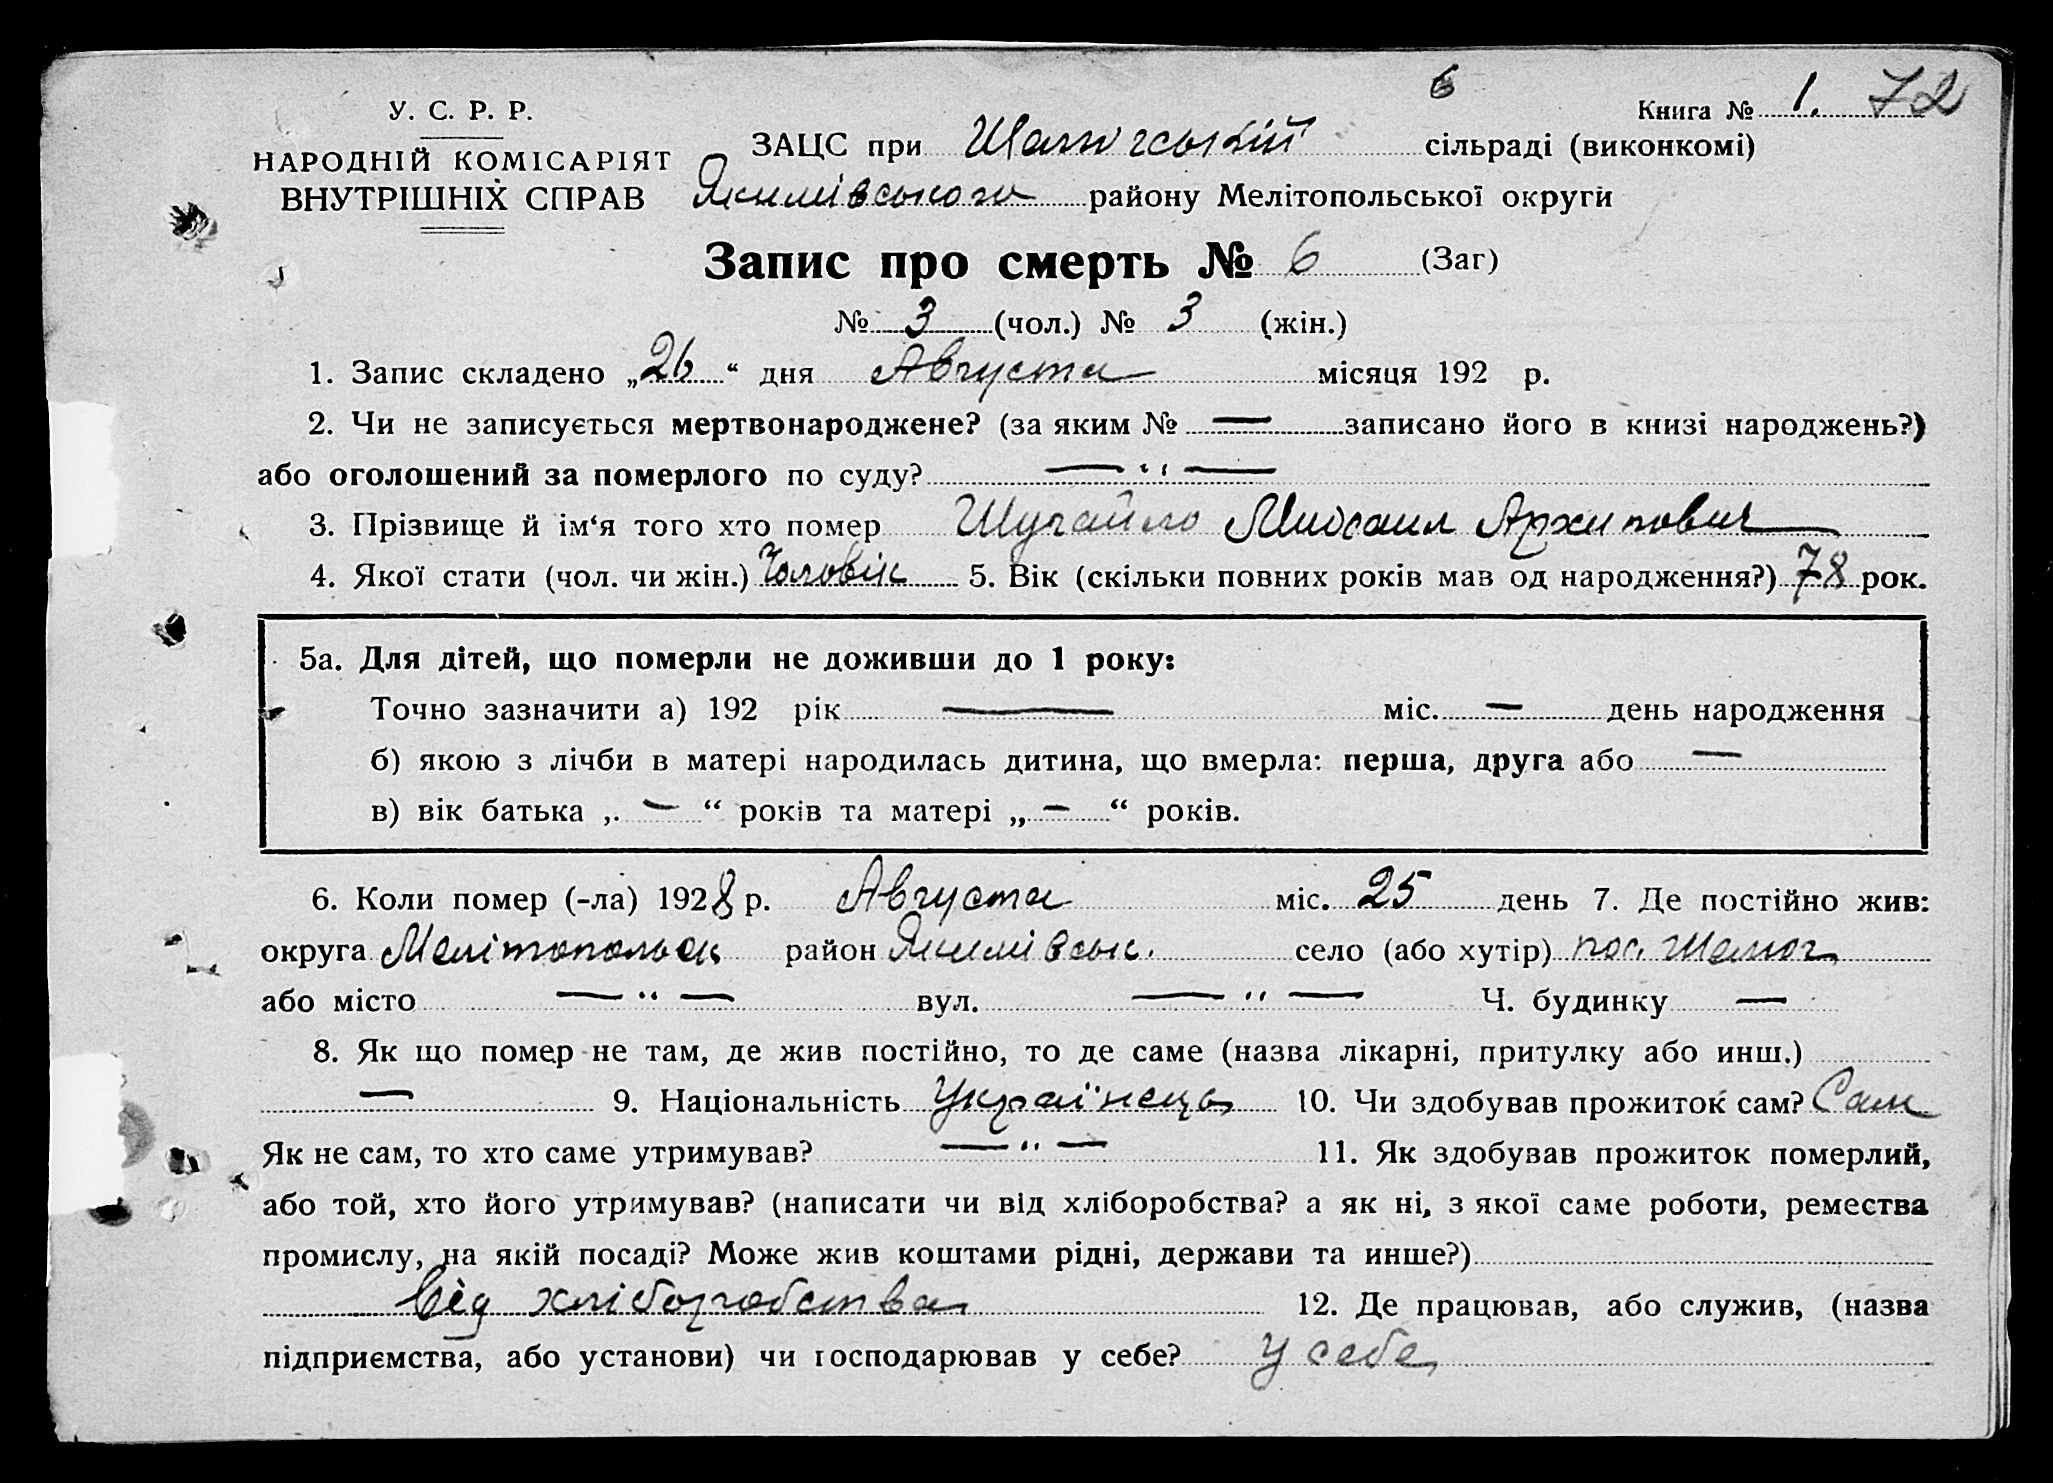 6
У. С. Р. Р.
Книга № 1. 72
НАРОДНІЙ КОМІСАРІЯТ
ВНУТРІШНІХ СПРАВ
ЗАЦС при сільраді (виконкомі)
Якимівського району Мелітопольської округи
Запис про смерть № 6 (Заг)
№ 3 (чол.) № 3 (жін.)
1. Запис складено „26“ дня Августа місяця 192 р.
2. Чи не записується мертвонароджене? (за яким № — записано його в книзі народжень?)
або оголошений за померлого по суду? — " —
3. Прізвище й ім‘я того хто помер Шугайло Михаил Архипович
4. Якої стати (чол. чи жін.) Чоловік 5. Вік (скільки повних років мав од народження?) 78 рок.
5а. Для дітей, що померли не доживши до 1 року:
Точно зазначити а) 192 рік — міс. — день народження
б) якою з лічби в матері народилась дитина, що вмерла: перша, друга або —
в) вік батька „ — “ років та матері „ — “ років.
6. Коли помер (-ла) 1928 р. Августа міс. 25 день 7. Де постійно жив:
округа Мелітопольск район Якимівськ. село (або хутір) пос.
або місто — " — вул. — " — Ч. будинку —
8. Як що помер не там, де жив постійно, то де саме (назва лікарні, притулку або инш.)
— 9. Національність Українець 10. Чи здобував прожиток сам? Сам
Як не сам, то хто саме утримував? — " — 11. Як здобував прожиток померлий,
або той, хто його утримував? (написати чи від хліборобства? а як ні, з якої саме роботи, ремества
промислу, на якій посаді? Може жив коштами рідні, держави та инше?)
Від хліборобства 12. Де працював, або служив, (назва
підприємства, або установи) чи господарював у себе? У себе